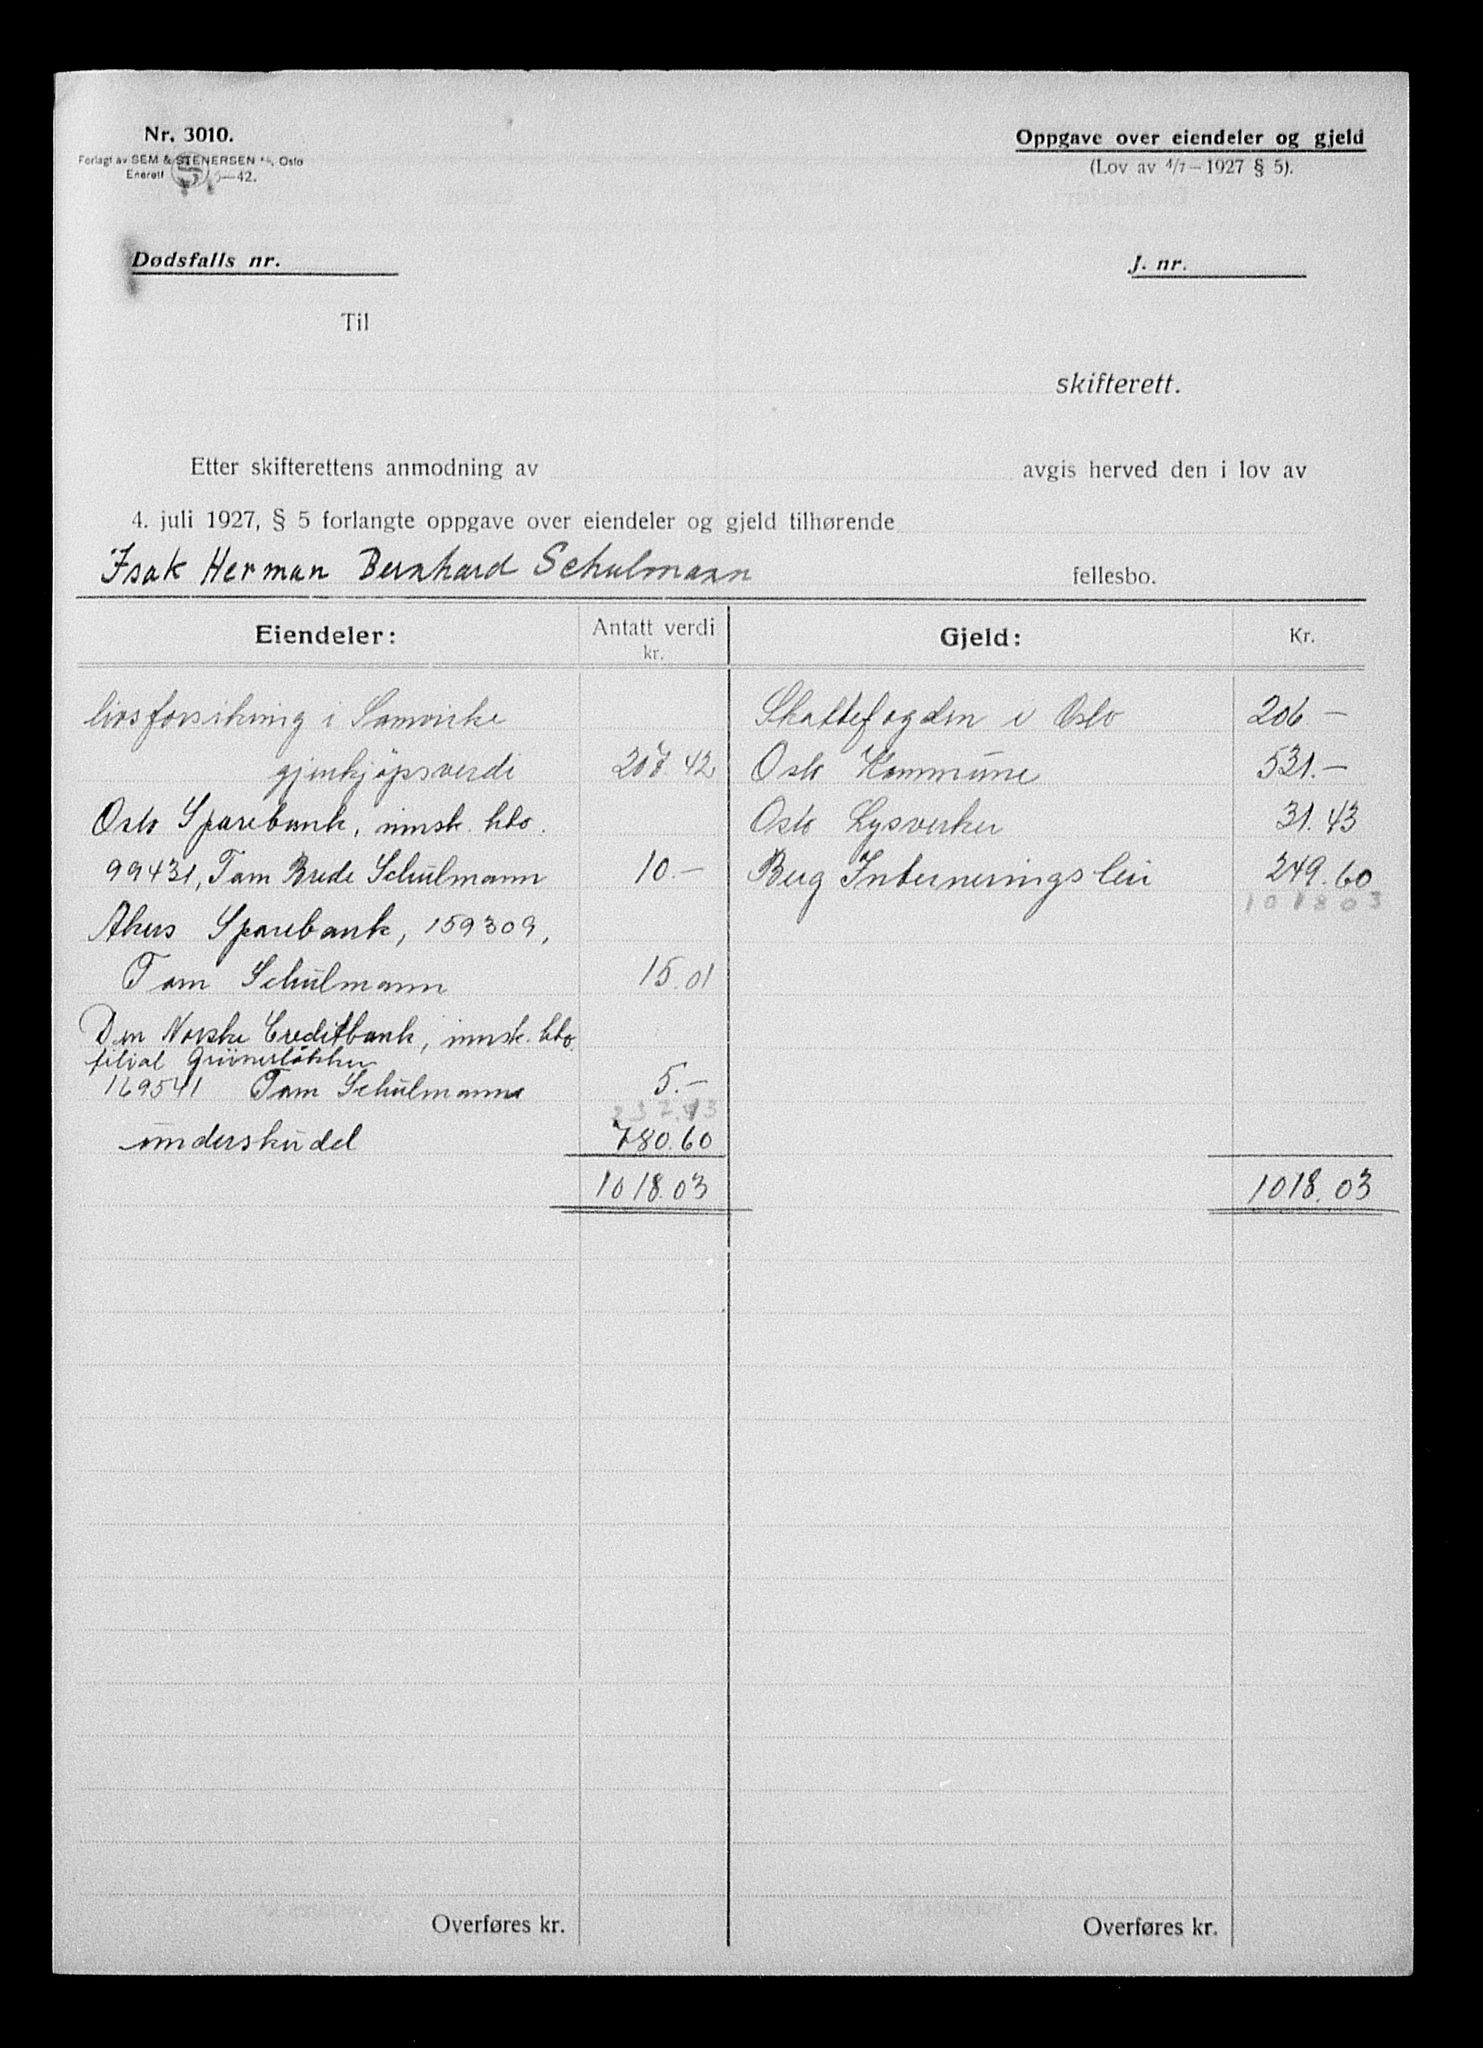 Nr. 3010.
Forlagt av SEM & STENERSEN A/S, Oslo
Enerett 5—42.
Oppgave over eiendeler og gjeld
(Lov av 4/7—1927 § 5).
Dødsfalls nr.
J. nr.
Til
skifterett.
Etter skifterettens anmodning av avgis herved den i lov av
4. juli 1927, § 5 forlangte oppgave over eiendeler og gjeld tilhørende
Isak Herman Bernhard Schulmann fellesbo.
Eiendeler: Antatt verdi kr. Gjeld: Kr.
livsforsikring i Samvirke Skattefogden i Oslo 206.—
gjenkjöpsverdi 207.42 Oslo Kommune 531.—
Oslo Sparebank, innsk. kto. Oslo Lysverker 31.43
99431, Tom Brede Schulmann 10.— Berg Interneringsleir 249.60
101803
Akers Sparebank, 159309,
Tom Schulmann 15.01
Den Norske Creditbank, innsk. kto.
filial Grünerløkken
169541 Tom Schulmann 5.—
237.43
underskudd 780.60
1018.03 1018.03
Overføres kr. Overføres kr.